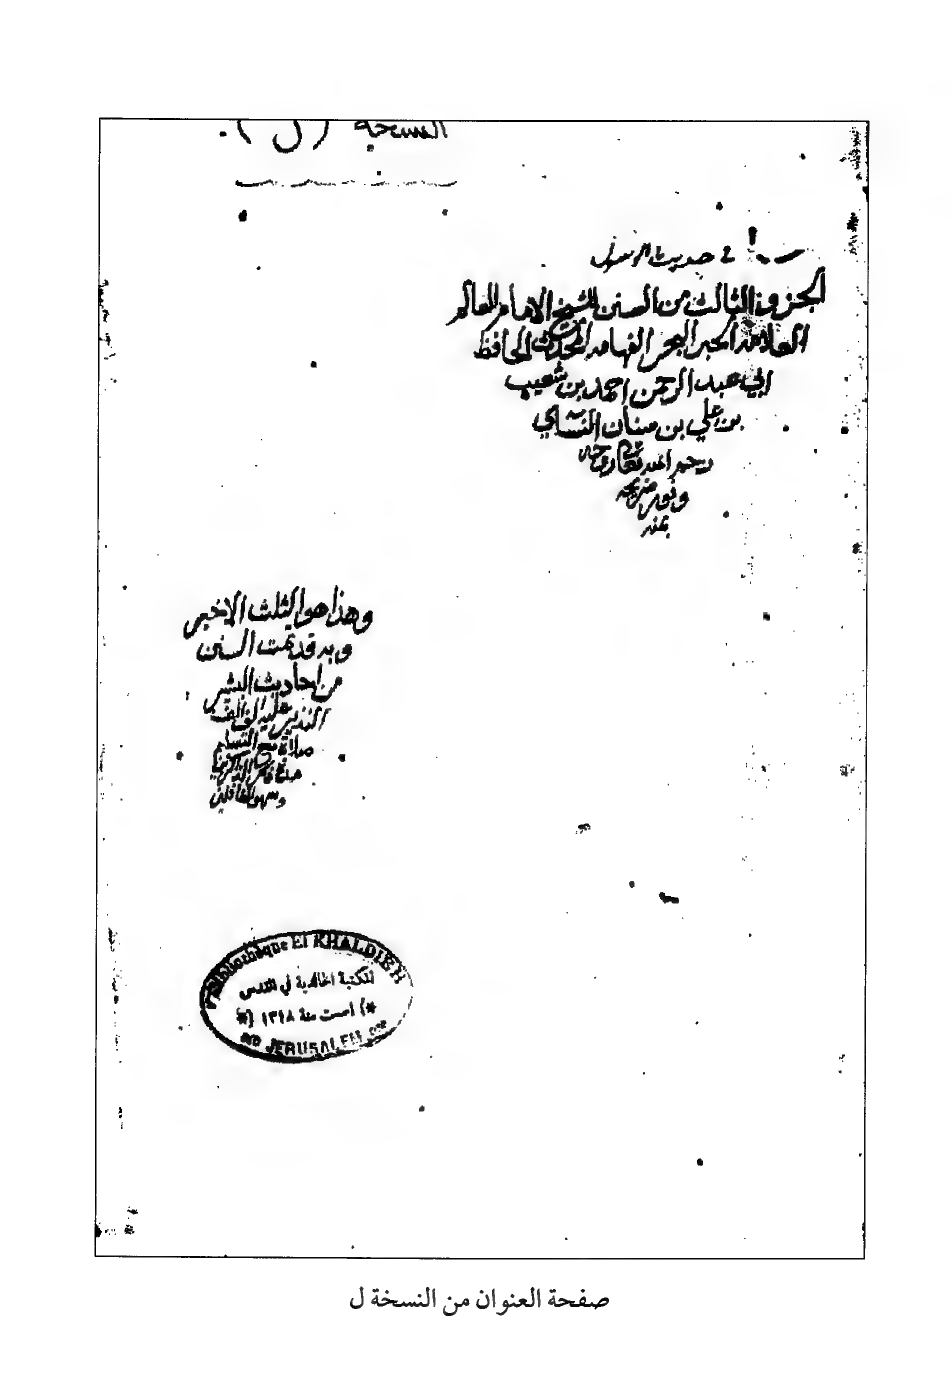 النسخة (ل).
في حديث الرسول
الجزو الثالث من السنن للشيخ الامام العالم
العلامه الحبر البحر الفهامه المحدث الحافظ
ابي عبد الرحمن احمد بن شعيب
بن علي بن سنان النسائي
رحمه الله تعالى
ونور ضريحه
بمنه
وهذا هو الثلث الاخير
وبه قد تمت السنن
من احاديث البشير
النذير عليه الف الف
صلاة مع التسليم
وسهو الغافلين
Bibliothèque El KHALDIEH
المكتبة الخالدية في القدس
*) اسست سنة ١٣١٨ (*
JERUSALEM
صفحة العنوان من النسخة ل